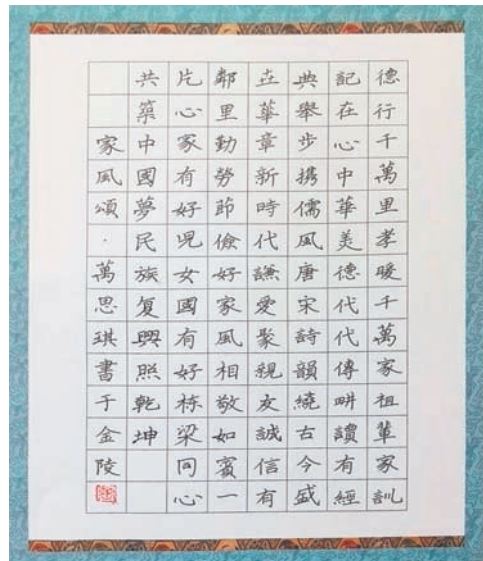 德行千萬里孝暖千萬家祖輩家訓
記在心中華美德代代傳耕讀有經
典舉步攜儒風唐宋詩韻繞古今盛
世華章新時代謙愛聚親友誠信有
鄰里勤勞節儉好家風相敬如賓一
片心家有好兒女國有好栋梁同心
共築中國夢民族复興照乾坤
家風頌·萬思琪書于金陵